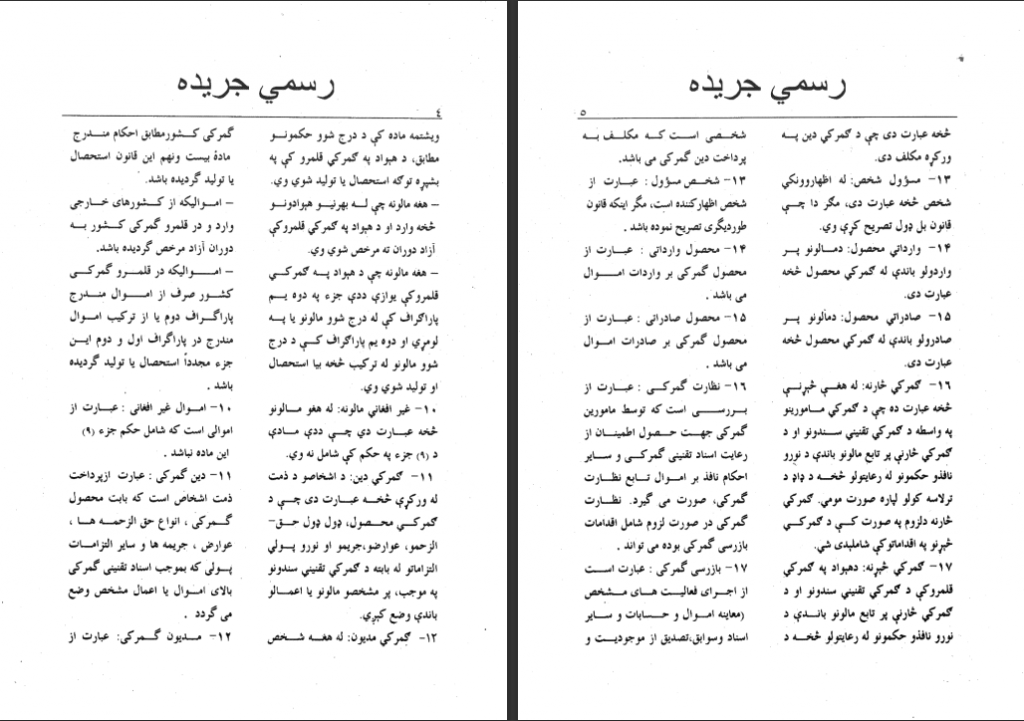 رسمي جريده
٤
ويشتمه ماده کې د درج شوو حکمونو
مطابق، د هېواد په گمرکي قلمرو کې په
بشپړه توگه استحصال يا توليد شوي وي.
– هغه مالونه چې له بهرنيو هېوادونو
څخه وارد او د هېواد په گمرکي قلمروکې
آزاد دوران ته مرخص شوي وي.
– هغه مالونه چې د هېواد په گمرکي
قلمروکې يوازې ددې جزء په دوه يم
پاراگراف کې له درج شوو مالونو يا په
لومړي او دوه يم پاراگراف کې د درج
شوو مالونو له ترکيب څخه بيا استحصال
او توليد شوي وي.
۱۰– غير افغاني مالونه: له هغو مالونو
څخه عبارت دي چې ددې مادې
د (۹) جزء په حکم کې شامل نه وي.
۱۱– گمرکي دين: د اشخاصو د ذمت
له ورکړې څخه عبارت دی چې د
گمرکي محصول، ډول ډول حق–
الزحمو، عوارضو،جريمو او نورو پولي
التزاماتو له بابته د گمرکي تقنيني سندونو
په موجب، پر مشخصو مالونو يا اعمالو
باندې وضع کېږي.
۱۲– گمرکي مديون: له هغه شخص
گمرکی کشورمطابق احکام مندرج
مادۀ بيست ونهم اين قانون استحصال
يا توليد گرديده باشد.
– اموالیکه از کشورهای خارجی
وارد و در قلمرو گمرکی کشور به
دوران آزاد مرخص گرديده باشد.
– اموالیکه در قلمرو گمرکی
کشور صرف از اموال مندرج
پاراگراف دوم يا از ترکيب اموال
مندرج در پاراگراف اول و دوم اين
جزء مجدداً استحصال يا توليد گرديده
باشد .
۱۰– اموال غير افغانی : عبارت از
اموالی است که شامل حکم جزء (۹)
اين ماده نباشد .
۱۱– دين گمرکی : عبارت ازپرداخت
ذمت اشخاص است که بابت محصول
گمرکی ، انواع حق الزحمه ها ،
عوارض ، جريمه ها و ساير التزامات
پولی که بموجب اسناد تقنينی گمرکی
بالای اموال يا اعمال مشخص وضع
می گردد .
۱۲– مديون گمرکی: عبارت از
رسمي جريده
۵
څخه عبارت دی چې د گمرکي دين په
ورکړه مکلف دی.
۱۳– مسؤول شخص: له اظهاروونکي
شخص څخه عبارت دی، مگر دا چې
قانون بل ډول تصريح کړې وي.
۱۴– وارداتي محصول: دمالونو پر
واردولو باندې له گمرکي محصول څخه
عبارت دی.
۱۵– صادراتي محصول: دمالونو پر
صادرولو باندې له گمرکي محصول څخه
عبارت دی.
۱۶– گمرکي څارنه: له هغې څېړنې
څخه عبارت ده چې د گمرکي مامورينو
په واسطه د گمرکي تقنيني سندونو او د
گمرکي څارنې پر تابع مالونو باندې د نورو
نافذو حکمونو له رعايتولو څخه د ډاډ د
ترلاسه کولو لپاره صورت مومي. گمرکي
څارنه دلزوم په صورت کې د گمرکي
څېړنو په اقداماتوکې شاملېدی شي.
۱۷– گمرکي څېړنه: دهېواد په گمرکي
قلمروکې د گمرکي تقنيني سندونو او د
گمرکي څارنې پر تابع مالونو باندې د
نورو نافذو حکمونو له رعايتولو څخه د
شخصی است که مکلف به
پرداخت دين گمرکی می باشد.
۱۳– شخص مسؤول : عبارت از
شخص اظهارکننده است، مگر اينکه قانون
طورديگری تصريح نموده باشد .
۱۴– محصول وارداتی : عبارت از
محصول گمرکی بر واردات اموال
می باشد .
۱۵– محصول صادراتی : عبارت از
محصول گمرکی بر صادرات اموال
می باشد .
۱۶– نظارت گمرکی : عبارت از
بررسی است که توسط مامورين
گمرکی جهت حصول اطمينان از
رعايت اسناد تقنينی گمرکی و ساير
احکام نافذ بر اموال تابع نظارت
گمرکی، صورت می گيرد. نظارت
گمرکی در صورت لزوم شامل اقدامات
بازرسی گمرکی بوده می تواند .
۱۷– بازرسی گمرکی : عبارت است
از اجرای فعاليت های مشخص
(معاينه اموال و حسابات و ساير
اسناد وسوابق،تصديق از موجوديت و